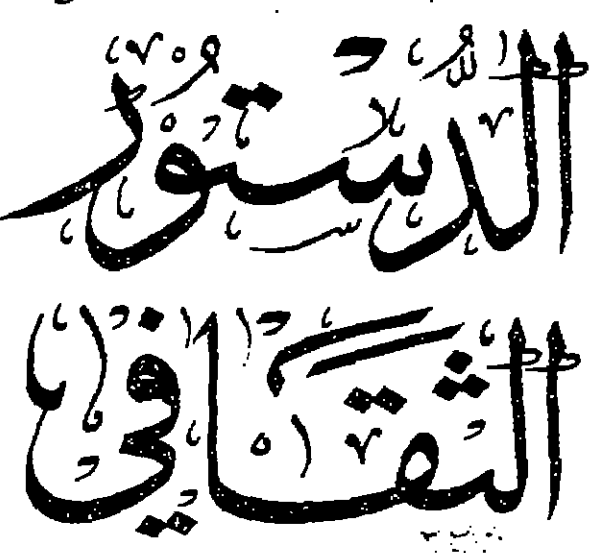 الدُّسْتُورُ
الثَّقَافِي